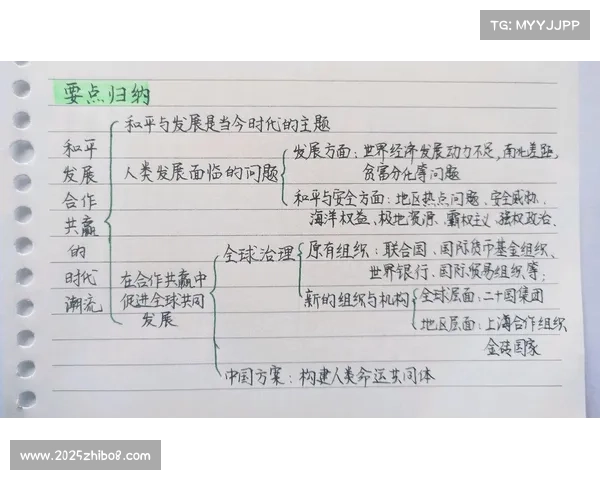 TG: MYYJJPP
要点归纳
和平与发展是当今时代的主题
和平
发展
合作
共赢
的
时代
潮流
人类发展面临的问题
发展方面：世界经济发展动力不足，南北差距，
贫富分化等问题
和平与安全方面：地区热点问题、安全威胁、
海洋权益、极地资源、霸权主义、强权政治.
在合作共赢中
促进全球共同
发展
全球治理
原有组织：联合国、国际货币基金组织、
世界银行、国际贸易组织等；
新的组织与机构
全球层面：二十国集团
地区层面：上海合作组织
金砖国家
中国方案：构建人类命运共同体
www.2025zhibo8.com